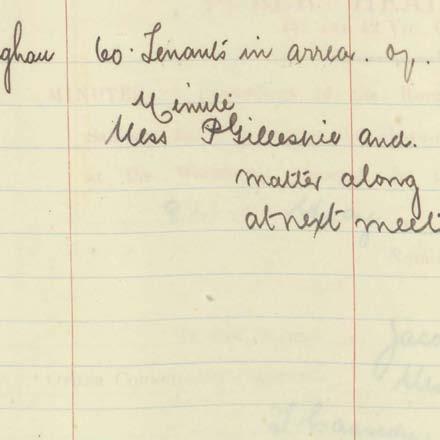 ghau 60. Tenants in arrear. of.
Minute
Mess P Gillespie and.
matter along
at next meet